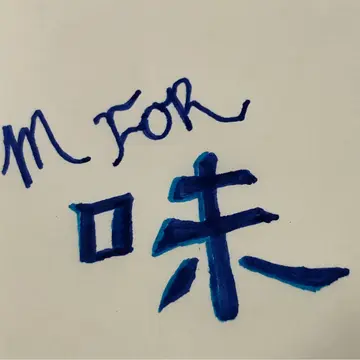 M FOR
味